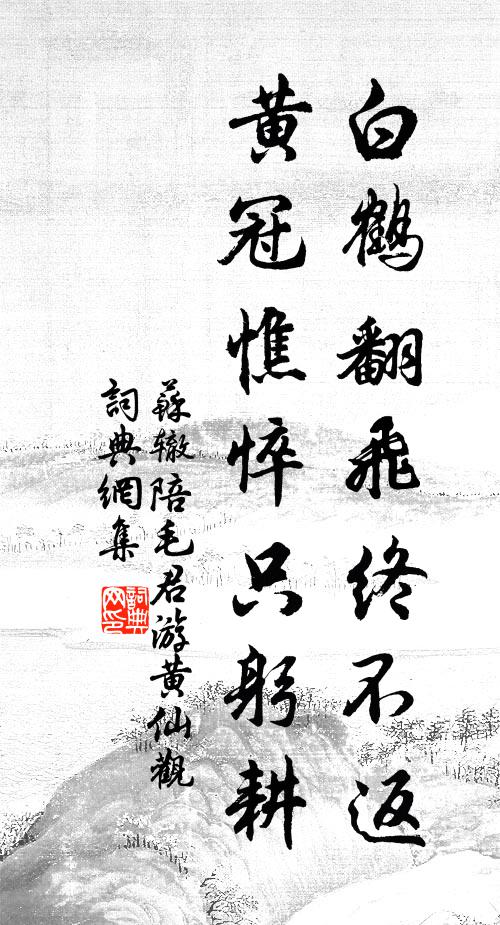 白鶴翻飛終不返
黃冠憔悴只躬耕
蘇轍陪毛君游黄仙觀
詞典網集
詞典网印